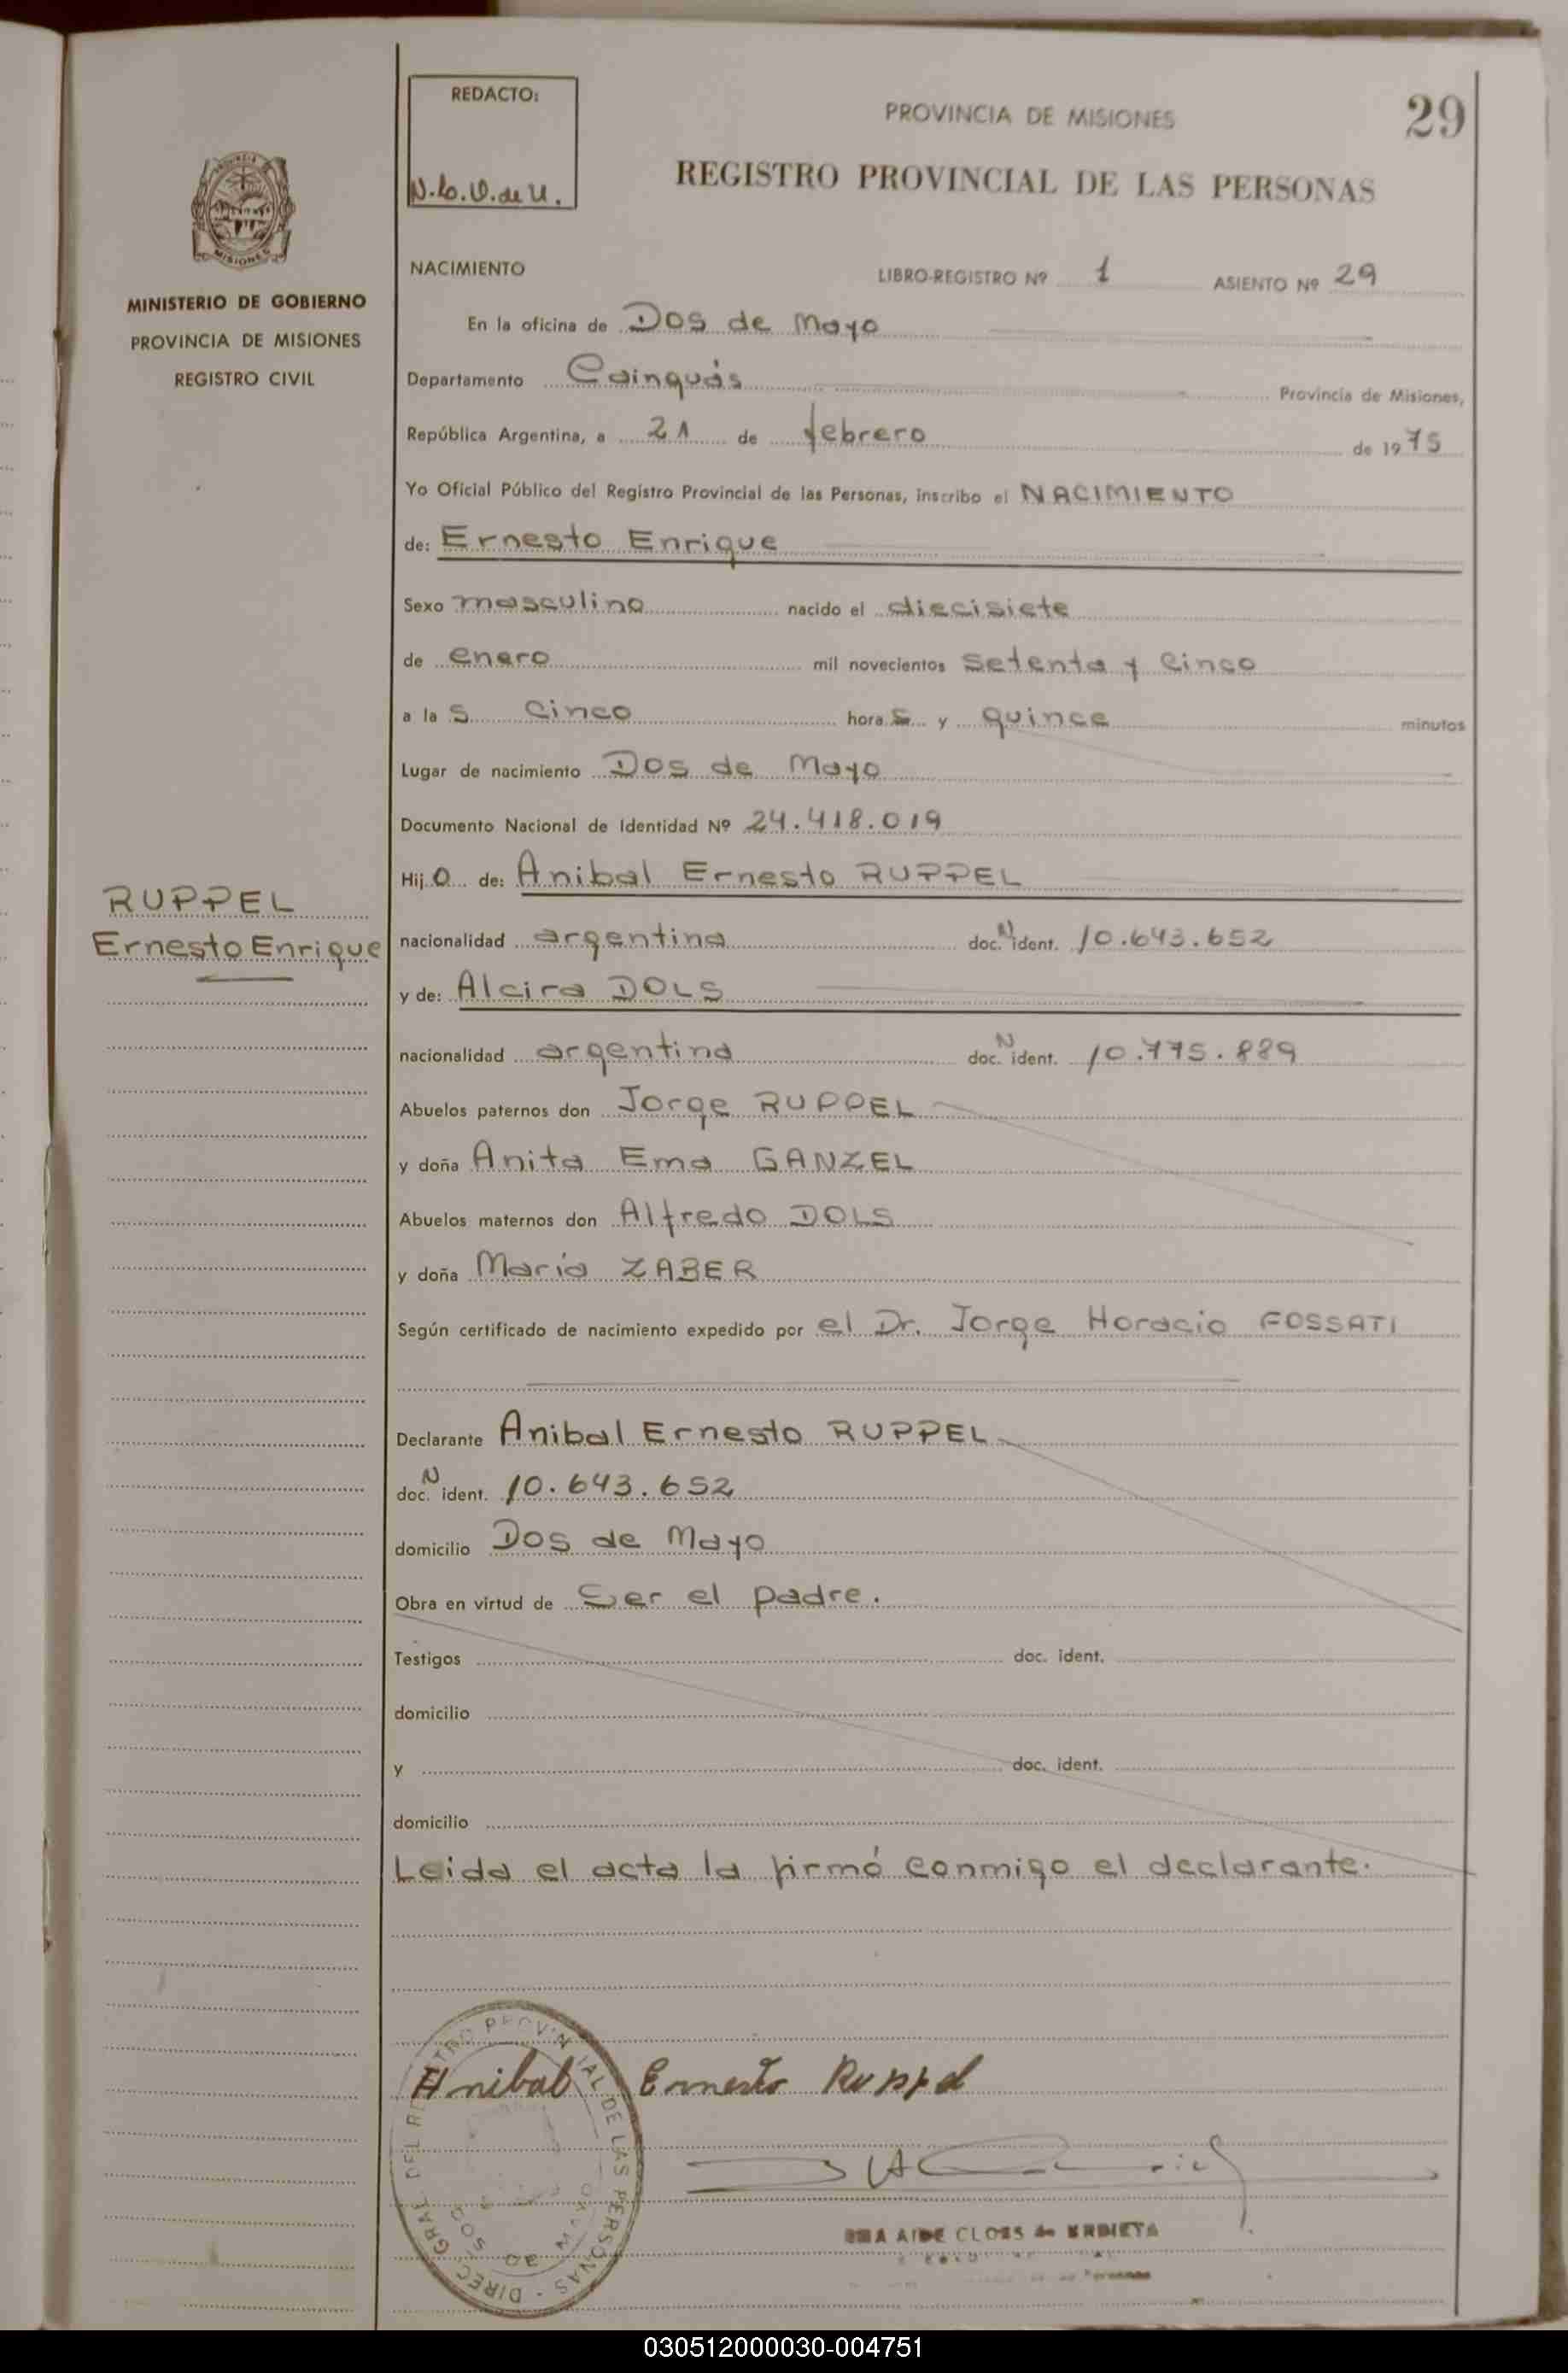 REDACTO:
PROVINCIA DE MISIONES
29
REGISTRO PROVINCIAL DE LAS PERSONAS
MISIONES
MINISTERIO DE GOBIERNO
PROVINCIA DE MISIONES
REGISTRO CIVIL
NACIMIENTO LIBRO-REGISTRO Nº 1 ASIENTO Nº 29
En la oficina de Dos de Mayo
Departamento Cainguás Provincia de Misiones,
República Argentina, a 21 de febrero de 1975
Yo Oficial Público del Registro Provincial de las Personas, inscribo el NACIMIENTO
de: Ernesto Enrique
Sexo masculino nacido el diecisiete
de enero mil novecientos setenta y cinco
a las cinco horas y quince minutos
Lugar de nacimiento Dos de Mayo
Documento Nacional de Identidad Nº 24.418.019
Hijo de: Anibal Ernesto RUPPEL
RUPPEL
Ernesto Enrique
nacionalidad argentina doc. N ident. 10.643.652
y de: Alcira DOLS
nacionalidad argentina doc. N ident. 10.775.889
Abuelos paternos don Jorge RUPPEL
y doña Anita Ema GANZEL
Abuelos maternos don Alfredo DOLS
y doña María ZABER
Según certificado de nacimiento expedido por el Dr. Jorge Horacio FOSSATI
Declarante Anibal Ernesto RUPPEL
doc. N ident. 10.643.652
domicilio Dos de Mayo
Obra en virtud de Ser el padre.
Testigos doc. ident.
domicilio
y doc. ident.
domicilio
Leida el acta la firmó conmigo el declarante.
Anibal Ernesto Ruppel
DIREC. GRAL. DEL REGISTRO PROVINCIAL DE LAS PERSONAS
DOS DE MAYO
AIDE CLOSS de URDIETA
030512000030-004751